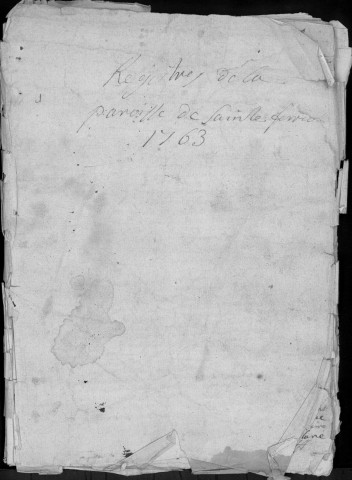 Registres de la
paroisse de Sainte
1763